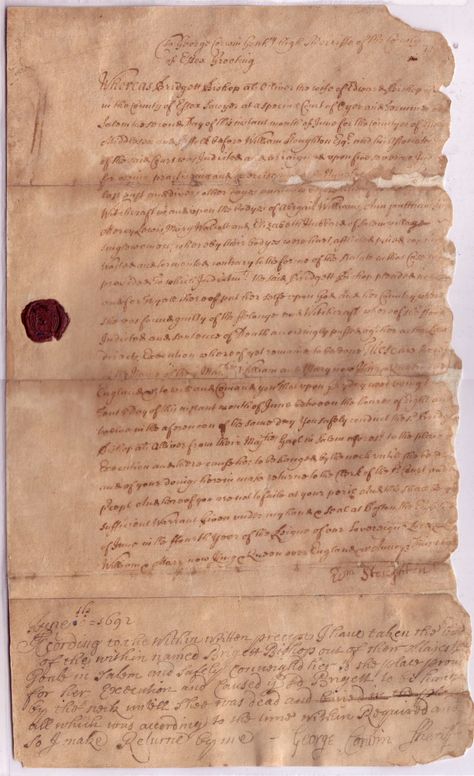 To George Corwin Gentm high Sherriffe of the County
of Essex Greeting
Whereas Bridgett Bishop al's Oliver the wife of Edward Bishop
in the County of Essex Sawyer at a speciall Court of Oyer and Terminer
Salem the second day of this instant month of June for the Countyes of
Middlesex and before William Stoughton Esqr and his Associates
of the said Court was Indicted and arraigned upon five severall
for useing practiseing and exerciseing
last past and divers other dayes
Witchcraft in and upon the bodyes of Abigail Williams Ann puttnam
Mercy Lewis Mary Walcott and Elizabeth Hubbard of Salem village
singlewomen, whereby their bodyes were hurt, afflicted pined
wasted and tormented contrary to the forme of the Statute in that Case
provided To which Indictmts the said Bridgett Bishop pleaded
and for Tryall thereof put her selfe upon God and her Country
she was found guilty of the felonyes and Witchcrafts whereof she stood
Indicted and sentence of Death accordingly passed agt her as the Law
directs Execution whereof yet remaines to be done These are
in the Name of their Maties William and Mary now King & Queen
England &c to will and Comand you That upon fryday next being
tenth day of this instant month of June between the houres of Eight and
twelve in the aforenoon of the same day You safely conduct the sd
Bishop als Oliver from their Maties Gaol in Salem aforesd to the place
Execution and there cause her to be hanged by the neck untill she be
and of your doings herein make returne to the Clerk of the sd Court and
precept And hereof you are not to faile at your peril And this shall be
sufficient Warrant Given under my hand & seal at Boston the Eighth
of June in the fourth year of the Reigne of our Sovereigne Lord &
William & Mary now King & Queen over England
Wm Stoughton
June 1692
According to the within written precept I have taken the body
of the within named Brigett Bishop out of their Majesties
Goale in Salem and Safely Conveighd her to the place provided
for her Execution and Caused ye sd Brigett to be hanged
by the neck untill Shee was dead and buried in the place
all which was according to the time within Required and
So I make Returne by me - George Corwin Sheriff